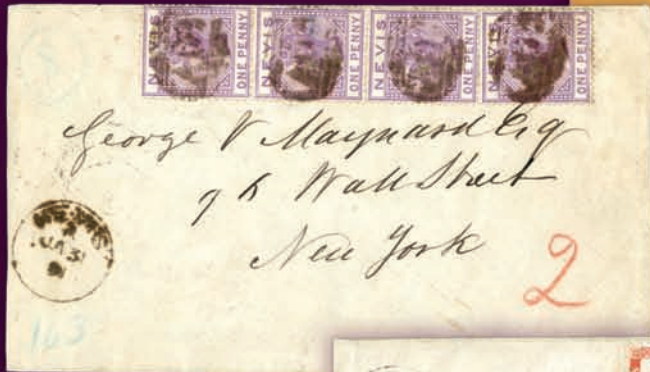 NEVIS ONE PENNY NEVIS ONE PENNY NEVIS ONE PENNY NEVIS ONE PENNY
George V Maynard Esq
Wall Street
New York
NEVIS
A
2
163